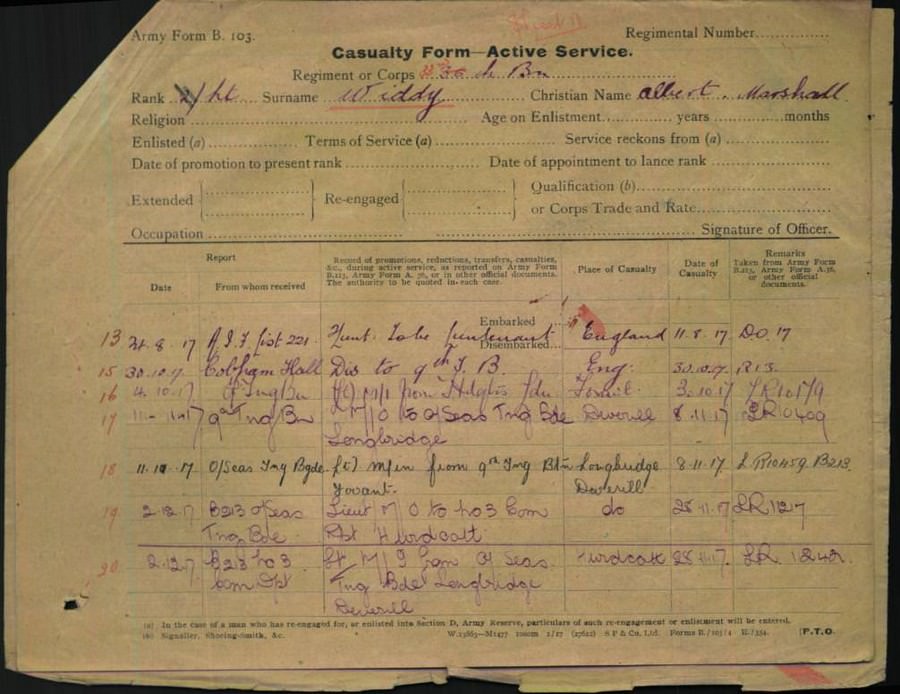 Army Form B. 103.
Regimental Number
Casualty Form—Active Service.
Regiment or Corps Bn
Rank 2/Lt Surname Widdy Christian Name Albert Marshall
Religion Age on Enlistment years months
Enlisted (a) Terms of Service (a) Service reckons from (a)
Date of promotion to present rank Date of appointment to lance rank
Extended Re-engaged Qualification (b)
or Corps Trade and Rate
Occupation Signature of Officer.
Report
Date From whom received
Record of promotions, reductions, transfers, casualties,
&c., during active service, as reported on Army Form
B.213, Army Form A. 36, or in other official documents.
The authority to be quoted in each case.
Place of Casualty
Date of
Casualty
Remarks
Taken from Army Form
B.213, Army Form A.36,
or other official
documents.
Embarked
Disembarked
13 8 17 A.I.F. list 221 To be Lieutenant England 11.8.17 DO 17
15 30.10.17 Cobham Hall Dis to 9th T. B. Eng. 30.10.17
16 4.10.17 Tng Bn M/I from 3.10.17
17 11-11-17 9th Tng Bn M/O to O/Seas Tng Bde Deverill 8.11.17
Longbridge
18 17 O/Seas Tng Bgde M/in from 9th Tng Btn Longbridge 8-11-17. LR10459 B213
Fovant. Deverill
19 2.12.17 B213 O/Seas Lieut M/O to No 3 Com do 28.11.17 LR 1127
Tng Bde Hurdcott
20 2.12.17 B213 No 3 Lt M/O Seas Hurdcott 28.11.17 LR
Com Dpt Tng Bde Longbridge
Deverill
(a) In the case of a man who has re-engaged for, or enlisted into Section D, Army Reserve, particulars of such re-engagement or enlistment will be entered.
(b) Signaller, Shoeing-Smith, &c. S P & Co. Ltd. P.T.O.